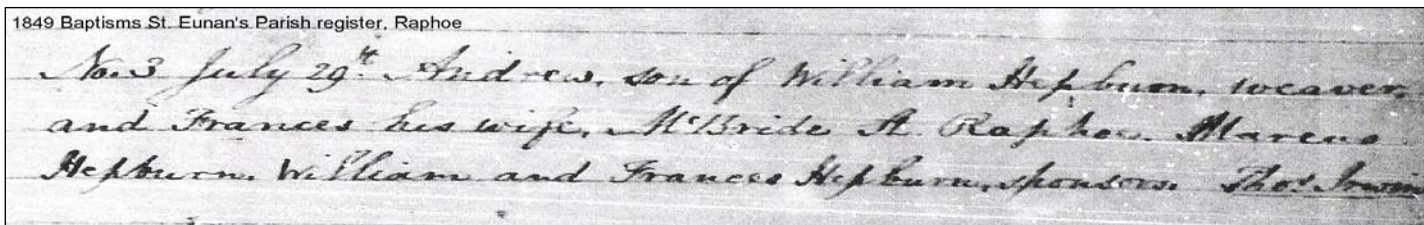 1849 Baptisms St. Eunan's Parish register, Raphoe
No. 3 July 29th. Andrew, son of William Hepburn, weaver,
and Frances his wife, McBride St. Raphoe. Marcus
Hepburn. William and Frances Hepburn, sponsors. Thos. Irwin